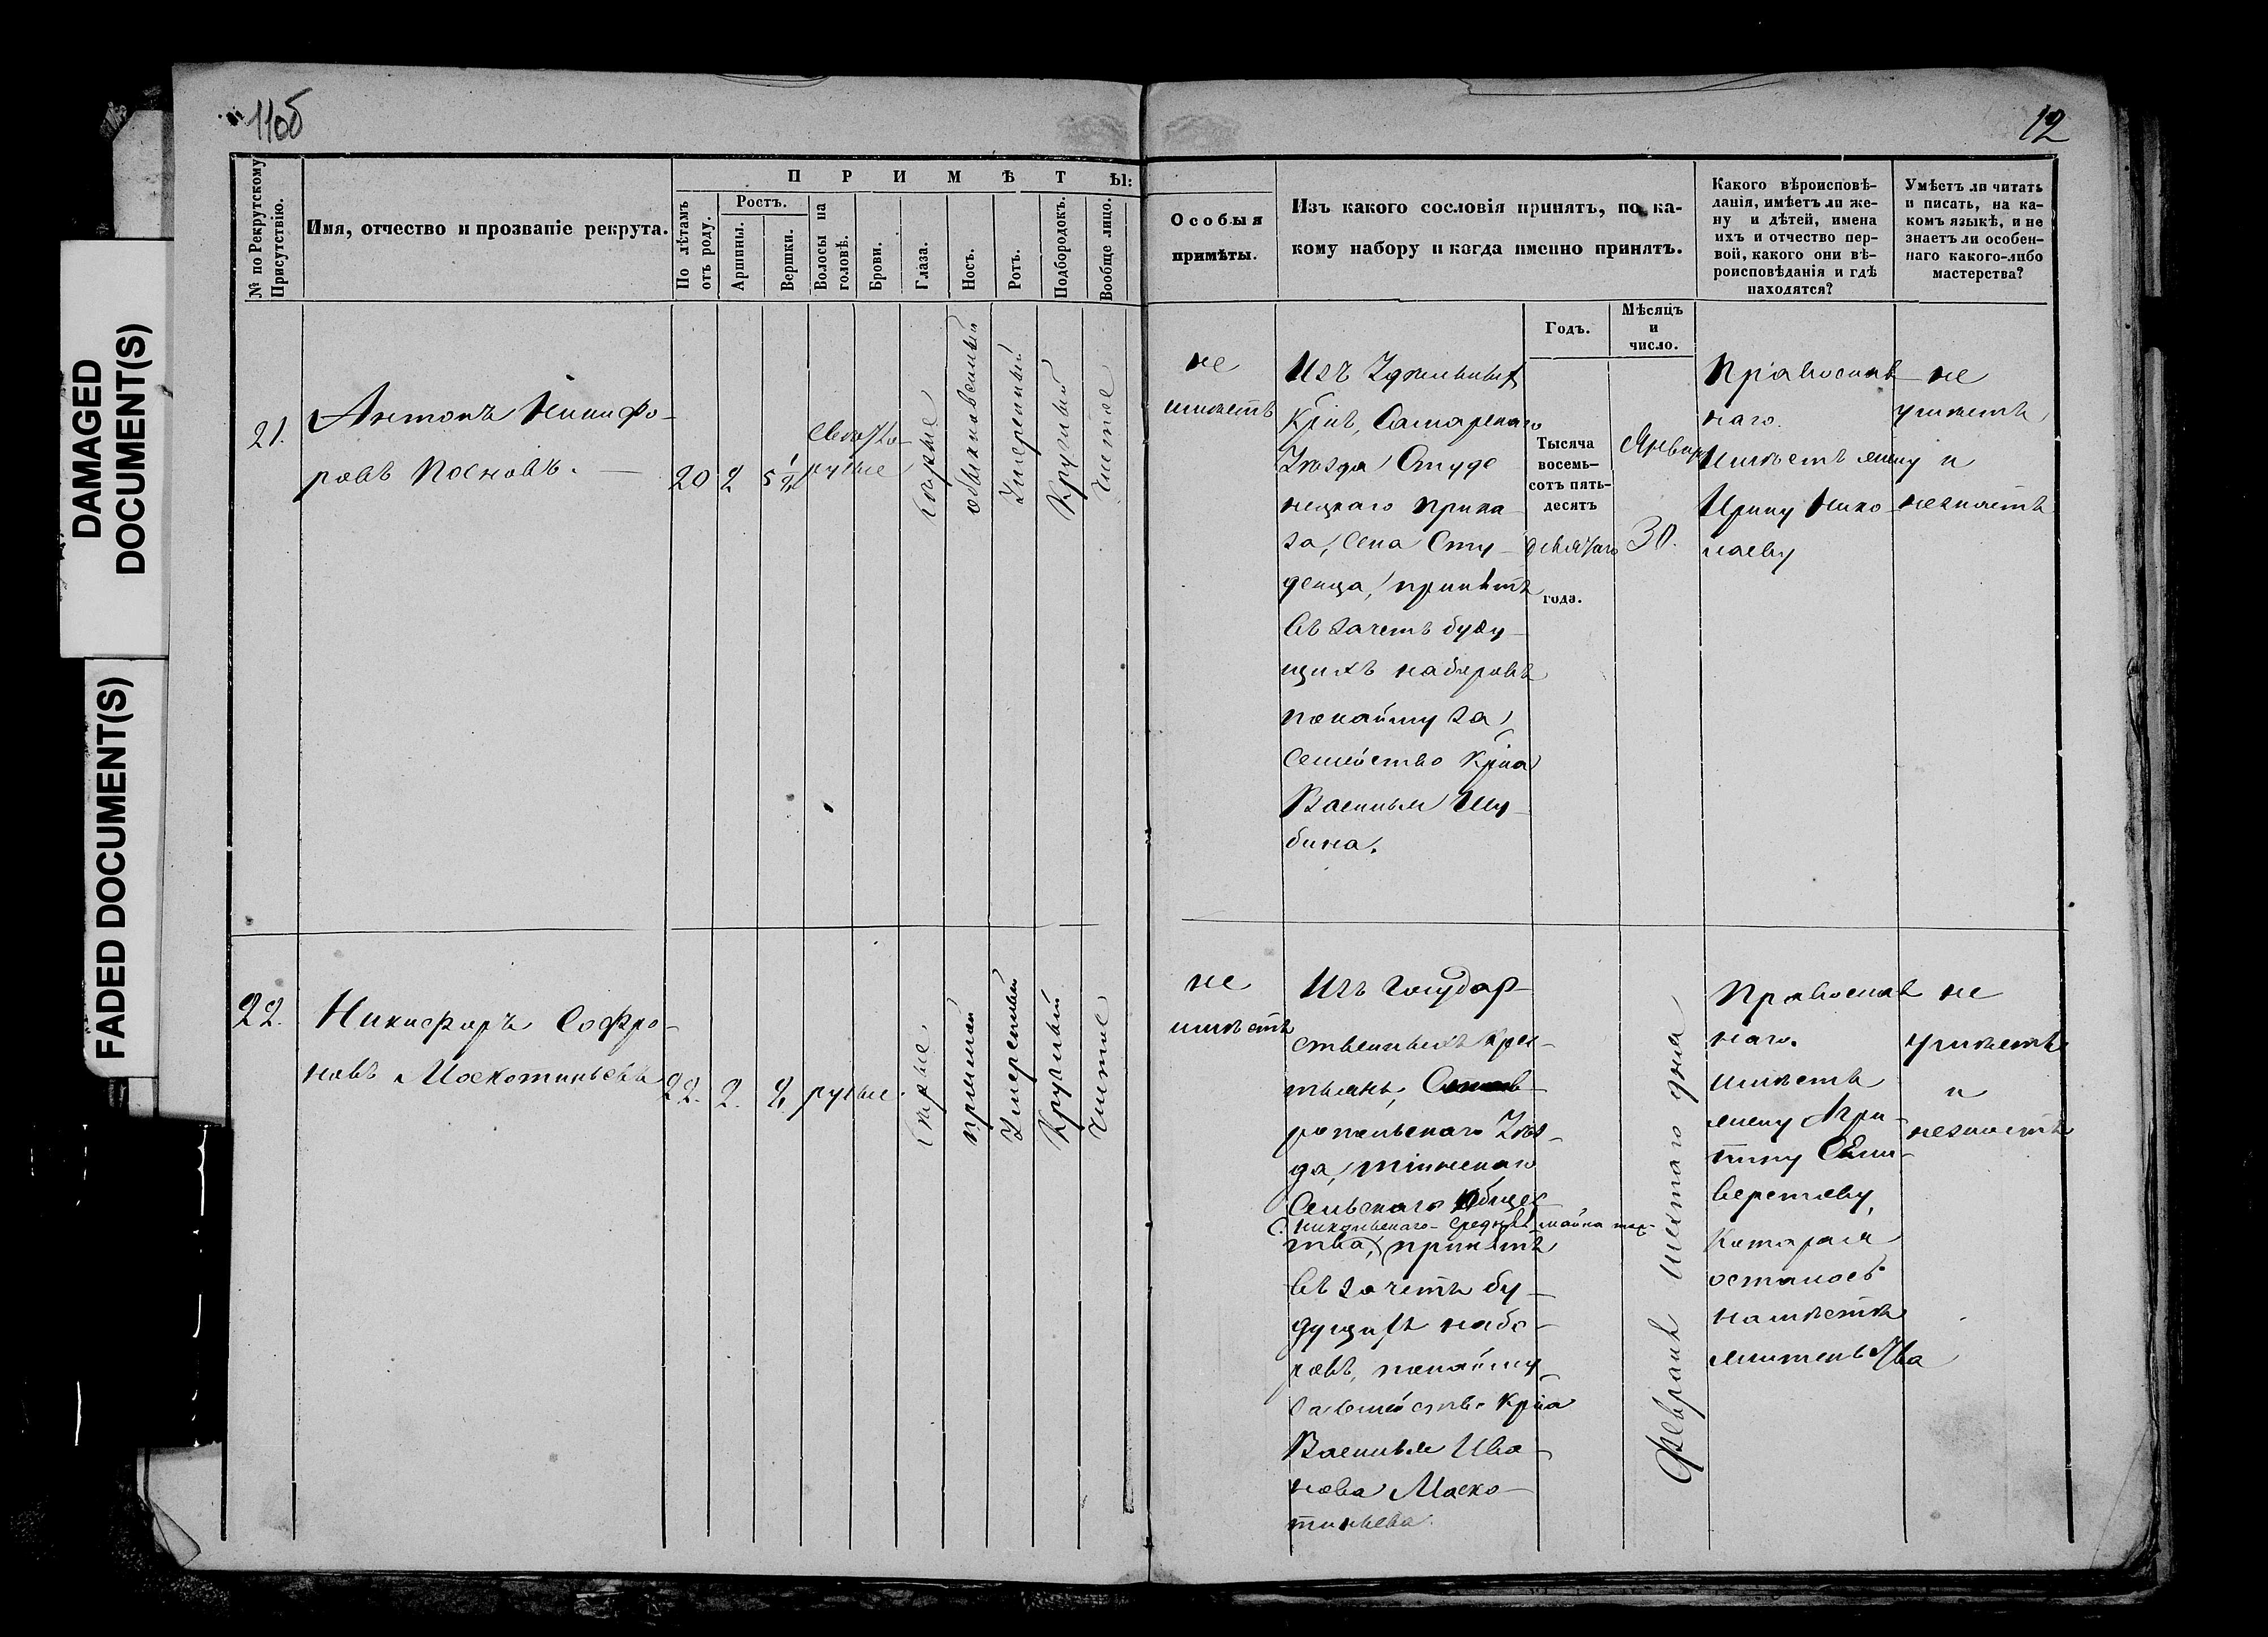 11об
12
DAMAGED
DOCUMENT(S)
FADED DOCUMENT(S)
№ по Рекрутскому
Присутствію.
Имя, отчество и прозваніе рекрута.
ПРИМѢТЫ:
По лѣтамъ
отъ роду.
Ростъ.
Аршины.
Вершки.
Волосы на
головѣ.
Брови.
Глаза.
Носъ.
Ротъ.
Подбородокъ.
Вообще лицо.
Особыя
примѣты.
Изъ какого сословія принятъ, по ка-
кому набору и когда именно принятъ.
Годъ.
Мѣсяцъ
и
число.
Какого вѣроисповѣ-
данія, имѣетъ ли же-
ну и дѣтей, имена
ихъ и отчество пер-
вой, какого они вѣ-
роисповѣданія и гдѣ
находятся?
Умѣетъ ли читать
и писать, на ка-
комъ языкѣ, и не
знаетъ ли особен-
наго какого-либо
мастерства?
21.
Антонъ Никифо-
ровъ Посновъ.
20
2
5 1/2
светло-
русые
карие
обыкновенный
умеренный
круглый
чистое
не
имѣетъ
Изъ Удѣльныхъ
Кр͠нъ, Самарскаго
Уѣзда Студе
нецкаго прика
за, Села Сту-
денца, принятъ
въ зачетъ буду-
щихъ наборовъ
понайму за
семейство Кр͠на
Василья Шу-
бина.
Тысяча
восемь-
сотъ пять-
десятъ
девятаго
года.
Январ
30.
Православ
наго.
Имѣетъ жену
Ирину Нико-
лаеву
не
умѣетъ
и
незнаетъ
22.
Никифоръ Софро-
новъ Москотиньевъ
22.
2.
4
русые.
карие
прямой
Умеренный
Круглый
Чистое
не
имѣетъ
Изъ Государ-
ственныхъ крес-
тьянъ, Став-
ропольскаго Уѣз-
да,
Сельскаго Общес-
С. Никольскаго-
тва, принятъ
въ зачетъ бу-
дущихъ набо-
ровъ, понайму
за семейство Кр͠на
Василья Ива-
нова Моско-
тиньева.
Февраля шестаго дня
Православ
наго.
имѣетъ
жену Агри-
пину Сели-
верстову,
Которая
осталась
на мѣстѣ
жительства
не
умѣетъ
и
незнаетъ